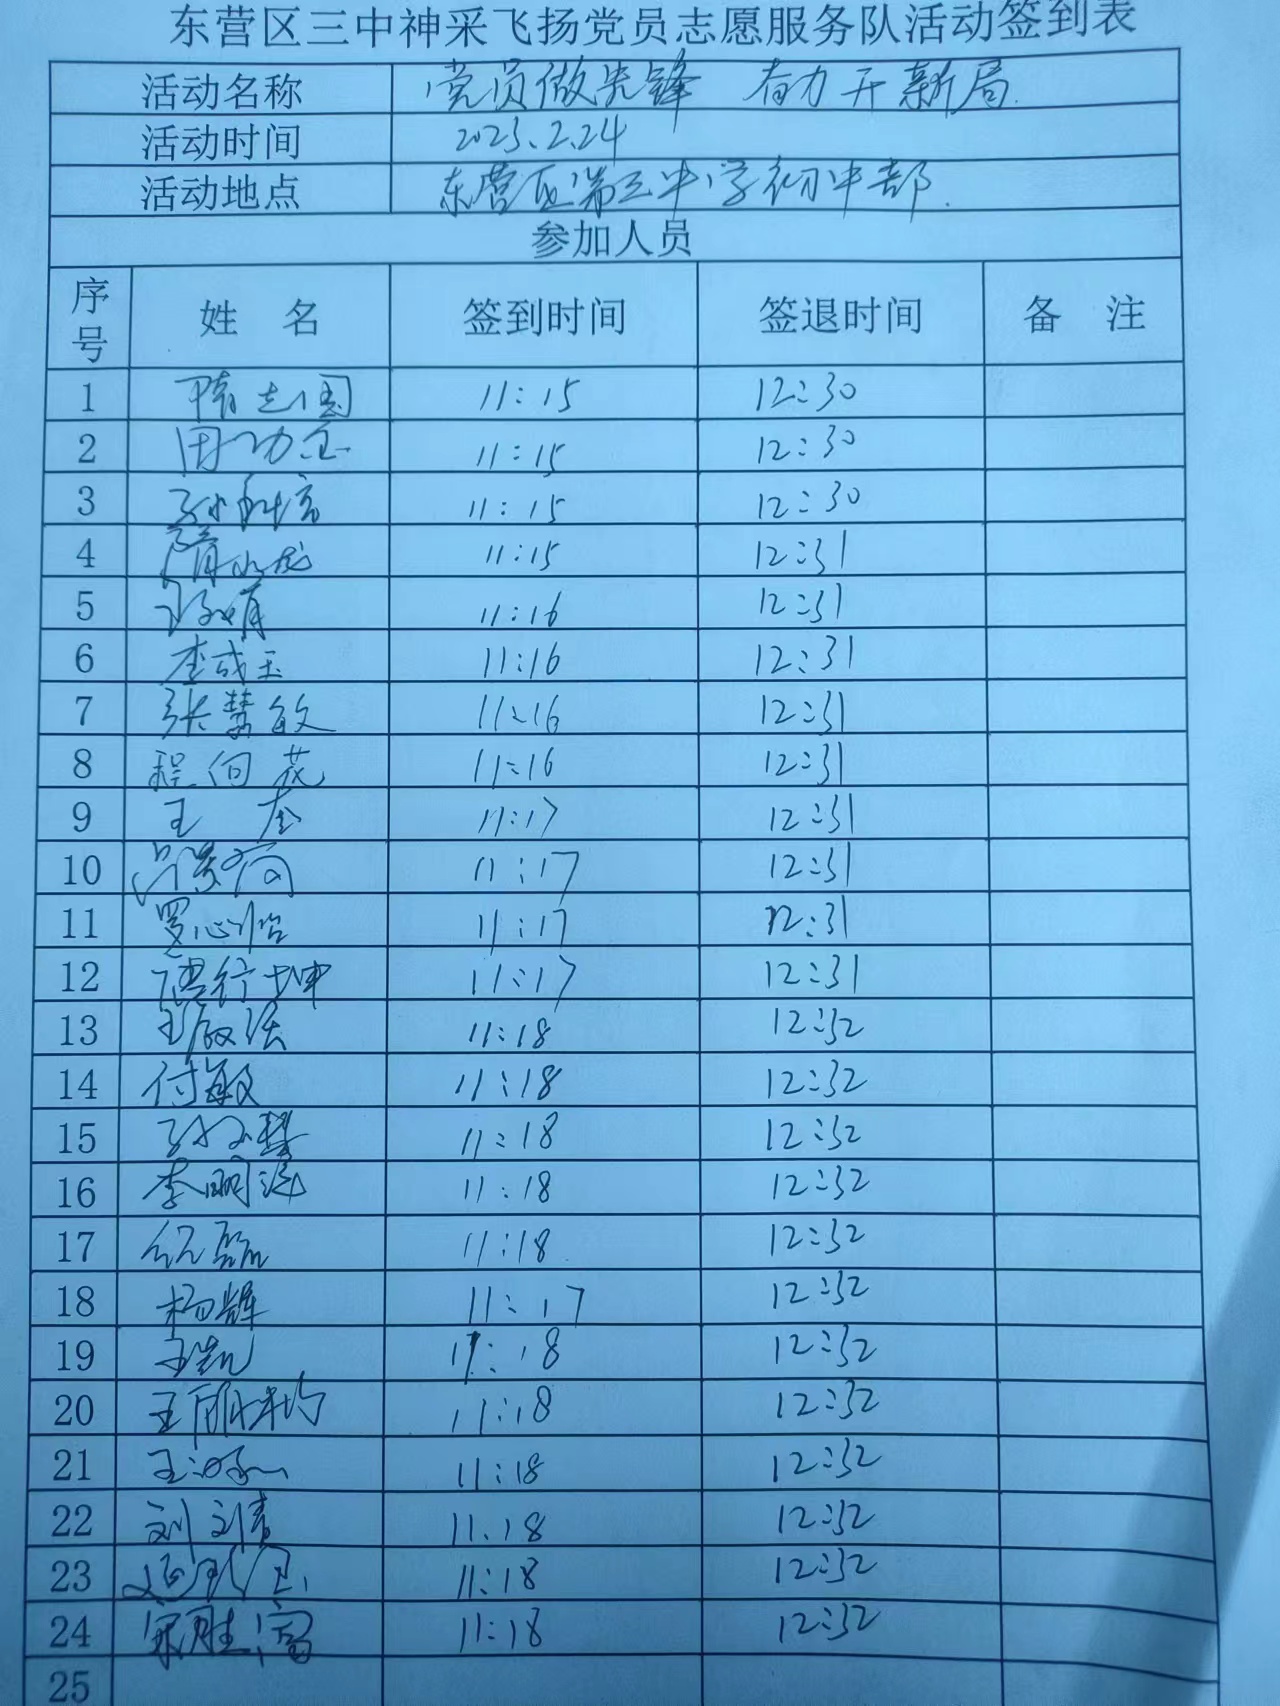 东营区三中神采飞扬党员志愿服务队活动签到表
活动名称 党员做先锋 奋力开新局
活动时间 2023.2.24
活动地点 东营区第三中学初中部
参加人员
序号 姓 名 签到时间 签退时间 备 注
1 隋志国 11:15 12:30
2 田功金 11:15 12:30
3 11:15 12:30
4 11:15 12:31
5 11:16 12:31
6 李成玉 11:16 12:31
7 张慧敏 11:16 12:31
8 程向花 11:16 12:31
9 王奎 11:17 12:31
10 11:17 12:31
11 罗心怡 11:17 12:31
12 11:17 12:31
13 11:18 12:32
14 付敏 11:18 12:32
15 11:18 12:32
16 11:18 12:32
17 11:18 12:32
18 杨辉 11:17 12:32
19 王凯 11:18 12:32
20 11:18 12:32
21 11:18 12:32
22 刘文清 11.18 12:32
23 11:18 12:32
24 宋胜富 11:18 12:32
25